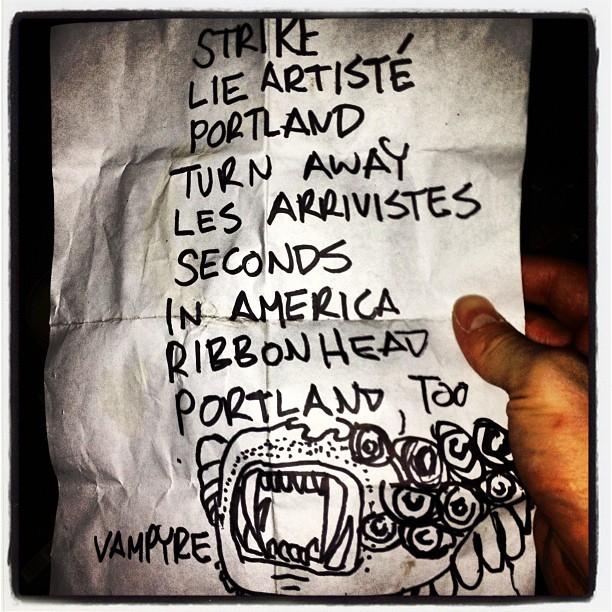 STRIKE
LIE ARTISTÉ
PORTLAND
TURN AWAY
LES ARRIVISTES
SECONDS
IN AMERICA
RIBBONHEAD
PORTLAND, TOO
VAMPYRE